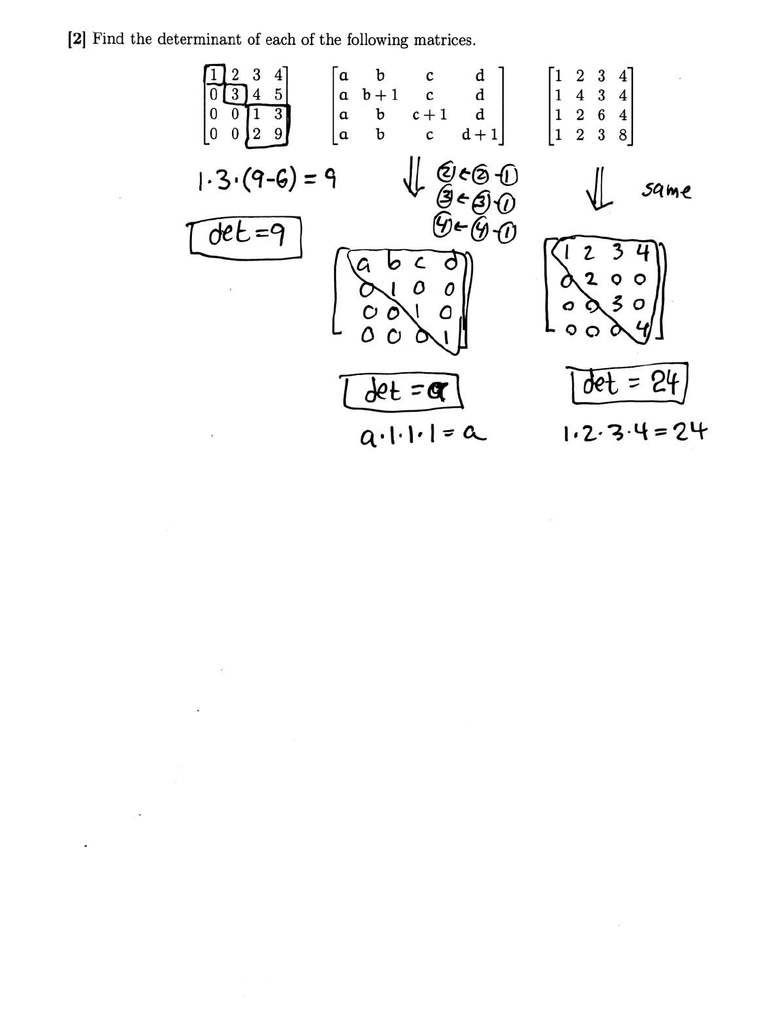 [2] Find the determinant of each of the following matrices.
1 2 3 4
0 3 4 5
0 0 1 3
0 0 2 9
a b c d
a b+1 c d
a b c+1 d
a b c d+1
1 2 3 4
1 4 3 4
1 2 6 4
1 2 3 8
1·3·(9-6) = 9
det = 9
⇓
② ← ② - ①
③ ← ③ - ①
④ ← ④ - ①
a b c d
0 1 0 0
0 0 1 0
0 0 0 1
det = a
a·1·1·1 = a
⇓ same
1 2 3 4
0 2 0 0
0 0 3 0
0 0 0 4
det = 24
1·2·3·4 = 24